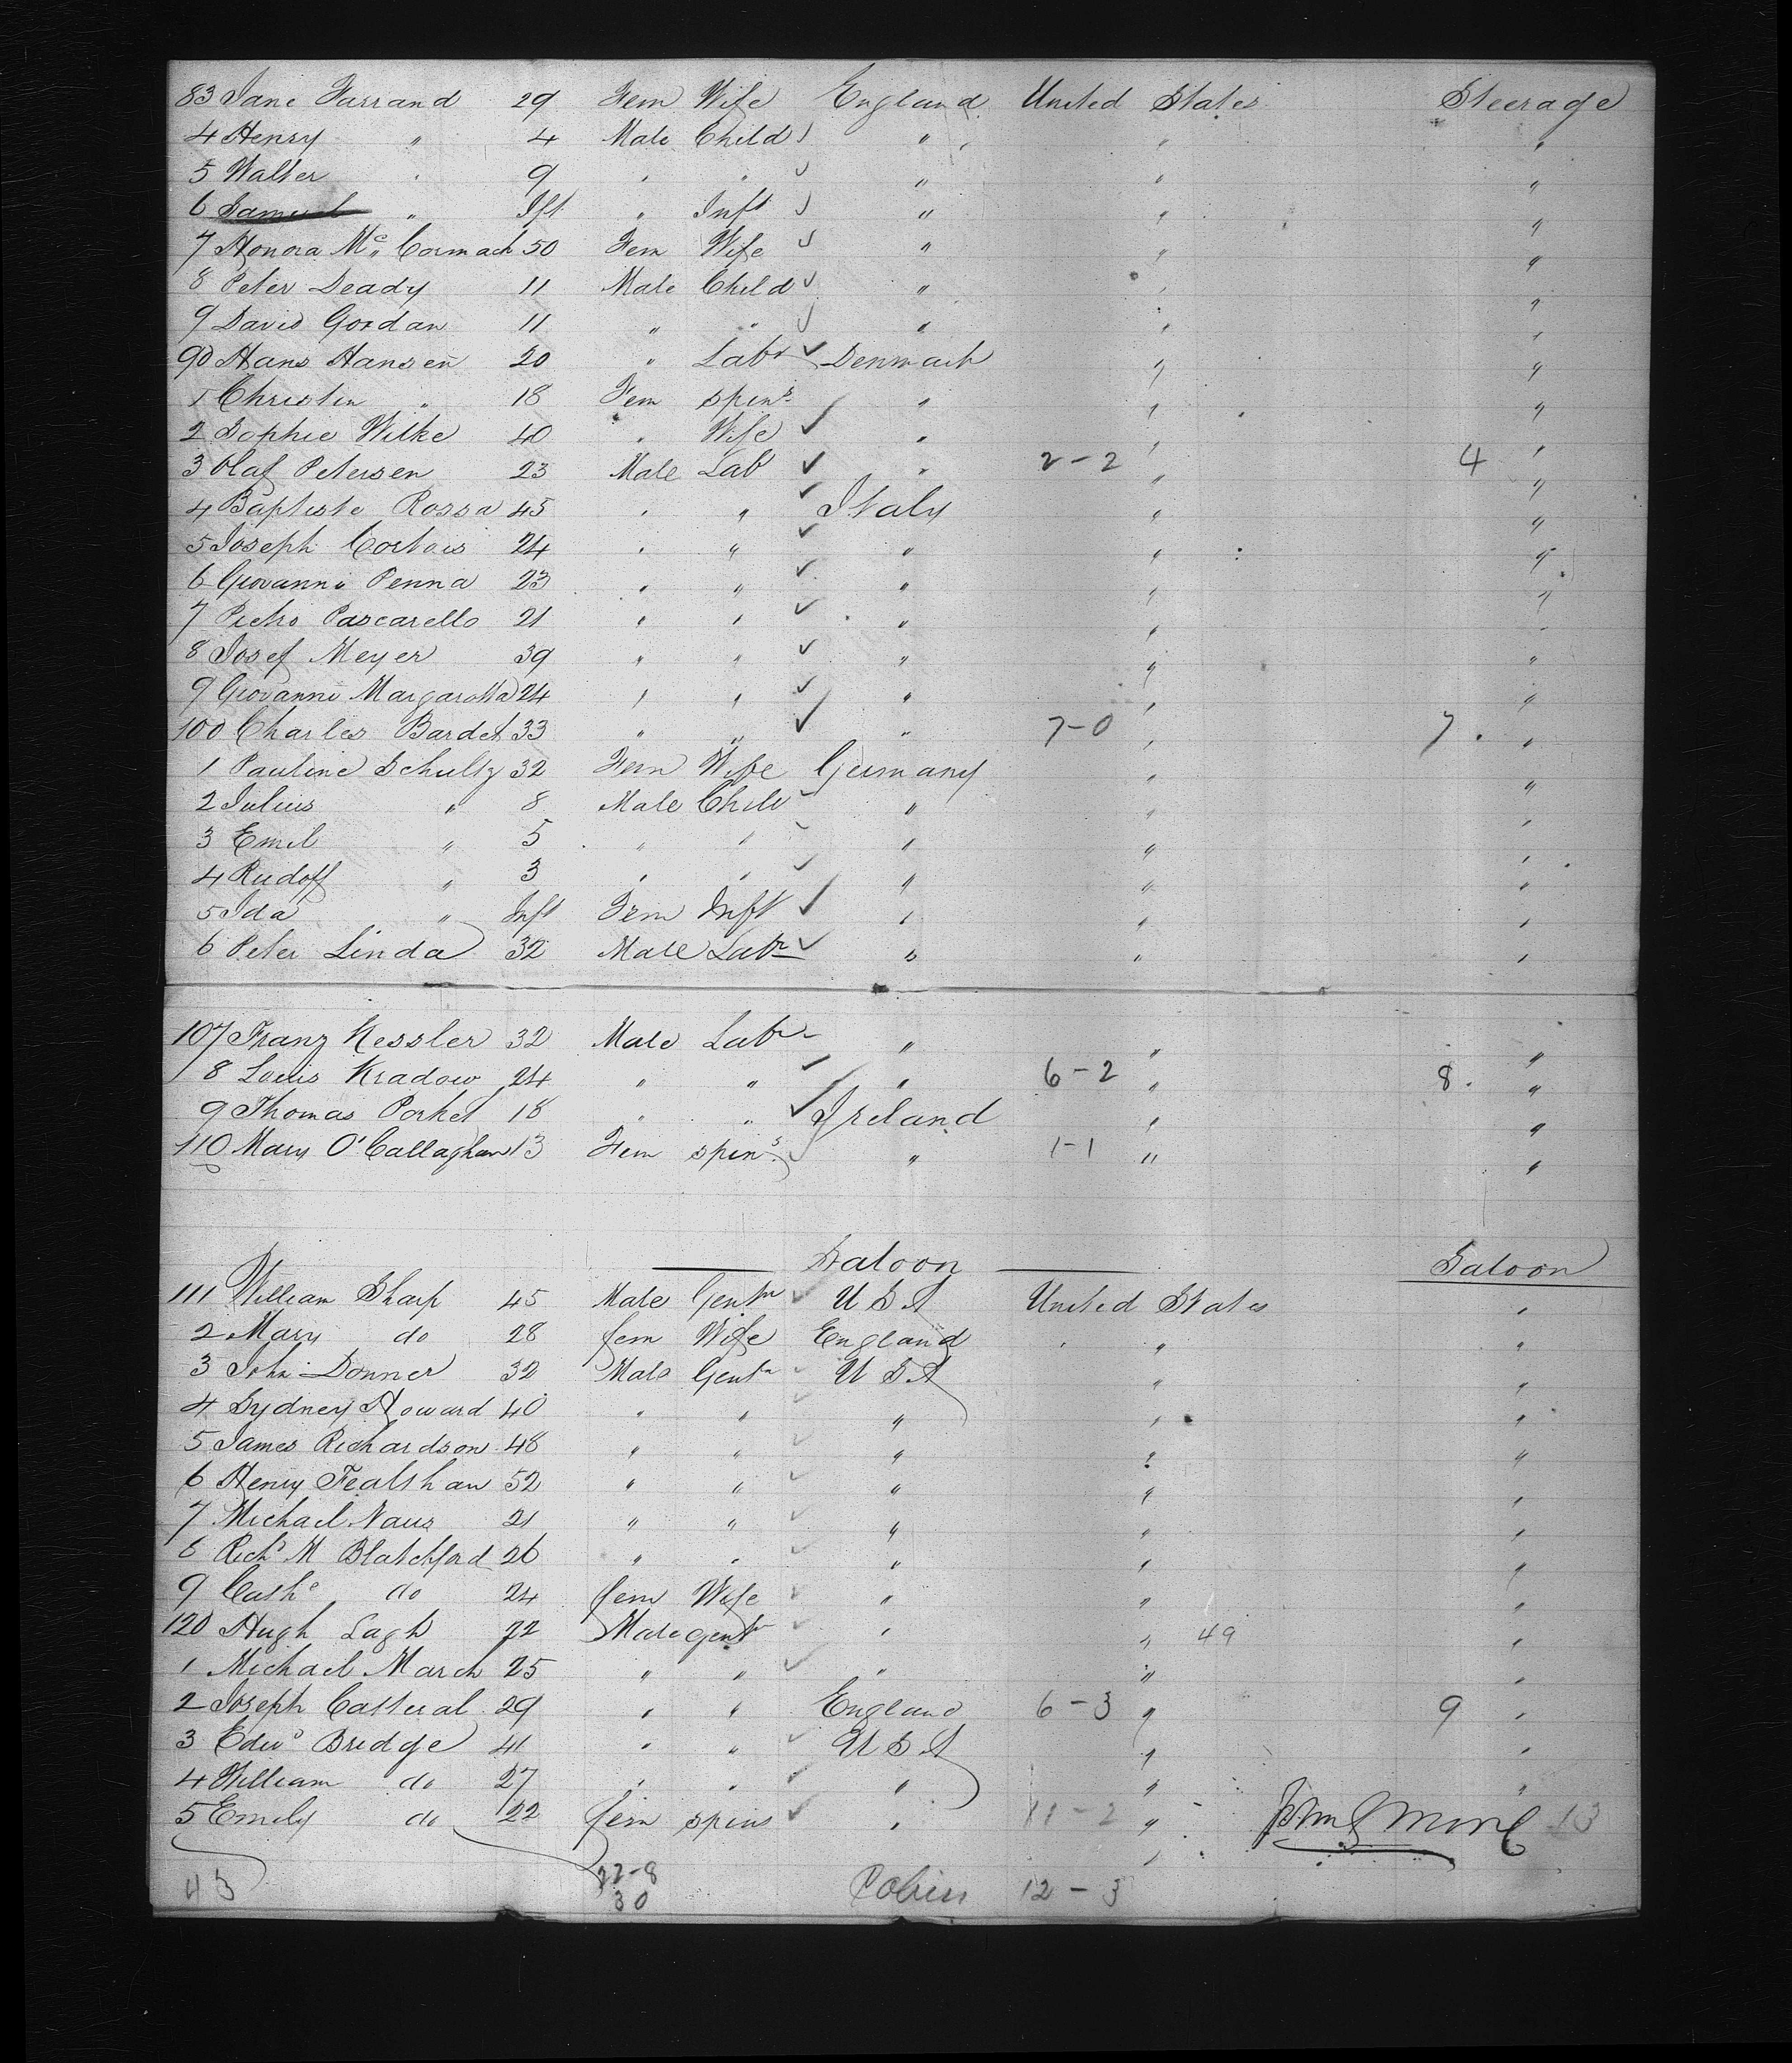 83 Jane Farrand 29 Fem Wife England United States Steerage
4 Henry " 4 Male Child " " "
5 Walter " 9 " " " " "
6 Samuel " Ift " Inft " " "
7 Honora Mc Cormack 50 Fem Wife " " "
8 Peter Deady 11 Male Child " " "
9 David Gordan 11 " " " " "
90 Hans Hansen 20 " Labr Denmark " "
1 Christin " 18 Fem spinr " " "
2 Sophie Wilke 40 " Wife " " "
3 Olaf Petersen 23 Male Lab " 2-2 " 4 "
4 Baptiste Rossa 45 " " Italy " "
5 Joseph Cortois 24 " " " " "
6 Giovanni Penna 23 " " " " "
7 Pietro Pascarello 21 " " " " "
8 Josef Meyer 39 " " " " "
9 Giovanni Margarotta 24 " " " " "
100 Charles Bardet 33 " " " 7-0 " 7. "
1 Pauline Schultz 32 Fem Wife Germany " "
2 Julius " 8 Male Child " " "
3 Emil " 5 " " " " "
4 Rudolf " 3 " " " " "
5 Ida " Inft Fem Inft " " "
6 Peter Linda 32 Male Labr " " "
107 Franz Kessler 32 Male Labr " " "
8 Louis Kradow 24 " " " 6-2 " 8. "
9 Thomas Porket 18 " " Ireland " "
110 Mary O'Callaghan 13 Fem spins " 1-1 " "
Saloon Saloon
111 William Sharp 45 Male Gentn U S A United States "
2 Mary do 28 fem Wife England " "
3 John Donner 32 Male Gentn U S A " "
4 Sydney Howard 40 " " " " "
5 James Richardson 48 " " " " "
6 Henry Fealshaw 52 " " " " "
7 Michael Naus 21 " " " " "
8 Richd M Blatchford 26 " " " " "
9 Cathe do 24 fem Wife " " "
120 Hugh 22 Male gentn " " 49 "
1 Michael March 25 " " " " "
2 Joseph Catteral 29 " " England 6-3 " 9 "
3 Edwd Bridge 41 " " U S A " "
4 William do 27 " " " " "
5 Emily do 22 fem spins " 11-2 " 13
43 22-8 12-3
30